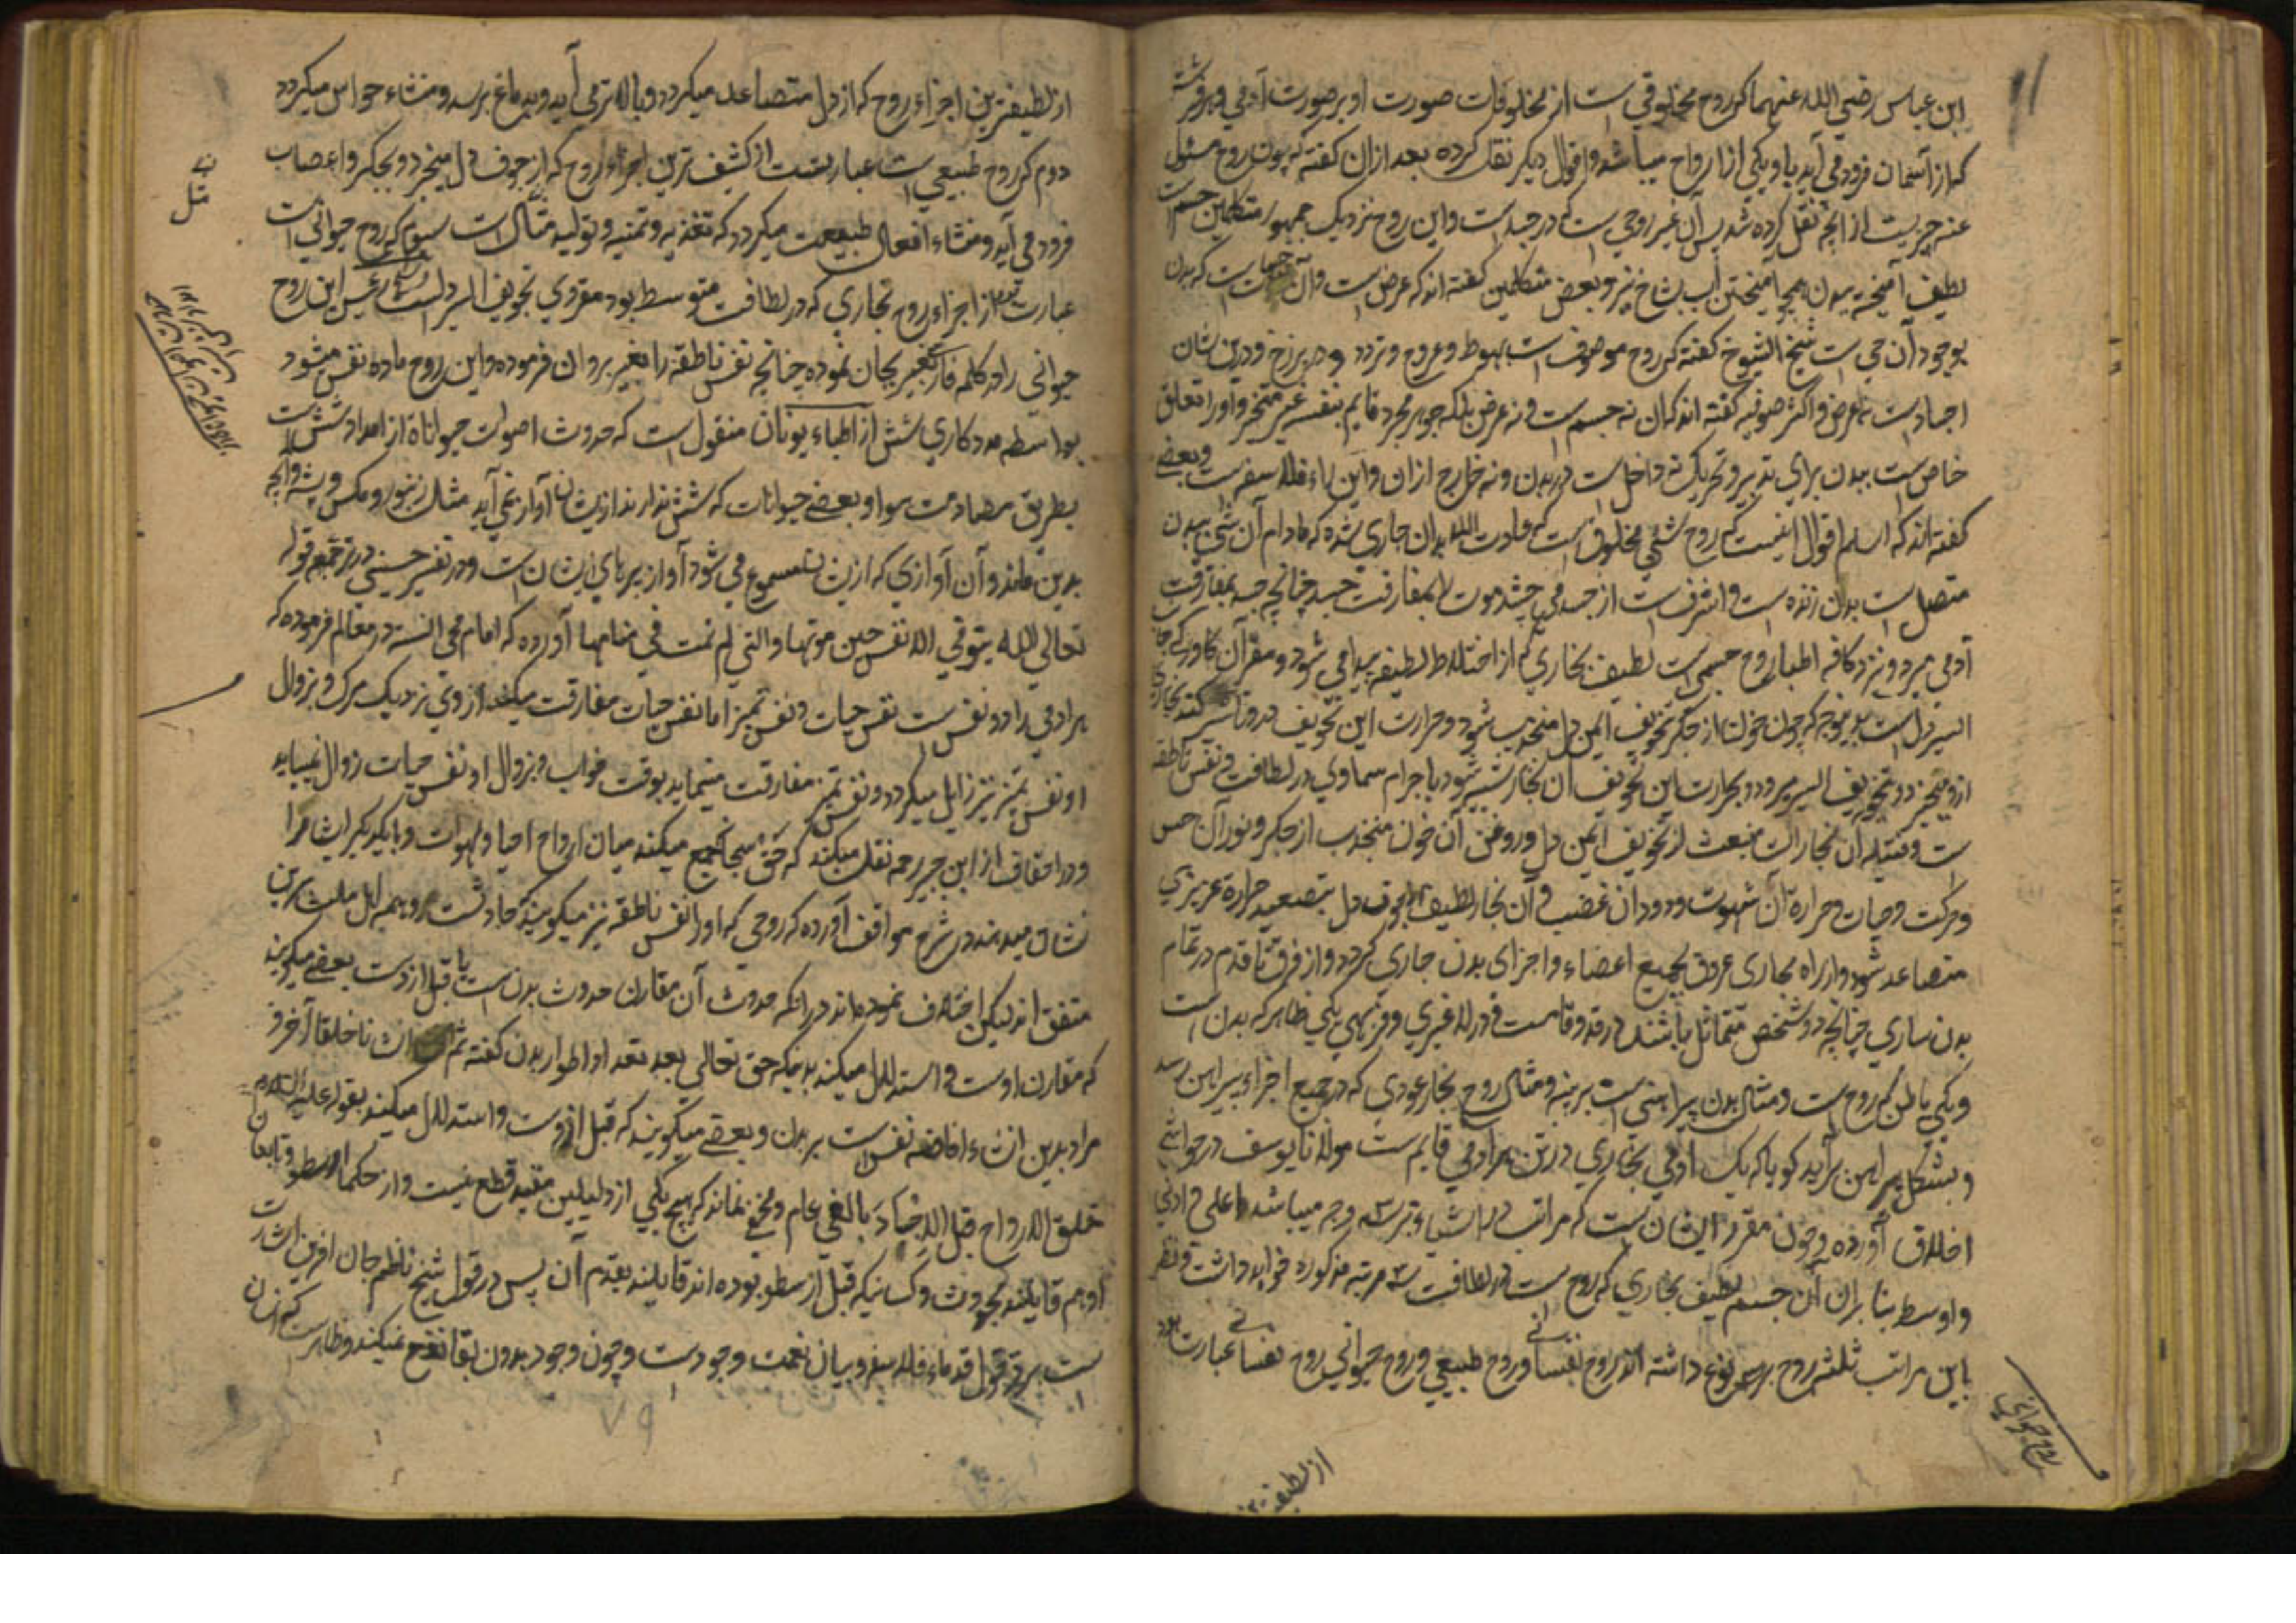 ابن عباس رضی الله عنهما که روح مخلوقی است از مخلوقات صورت او بر صورت آدمی و هر فرشته
که از آسمان فرود می آید با او یکی ازان ارواح میباشد و اقوال دیگر نقل کرده بعد ازان گفته که چون روح مسئول
عنه چیزیست از آنچه نقل کرده شد پس آن غیر روحی است که در جسد است و این روح نزدیک جمهور متکلمین جسم است
لطیف آمیخته ببدن همچو آمیختن آب بشاخ سبز و بعض متکلمین گفته اند که عرض است و آن حیات است که بدن
بوجود آن حی است شیخ الشیوخ گفته که روح موصوف است بهبوط و عروج و تردد در برزخ و درین شان
اجساد است نه اعراض و اکثر صوفیه گفته اند که آن نه جسم است و نه عرض بلکه جوهر مجرد قایم بنفسه غیر متحیز و او را تعلق
خاص است ببدن برای تدبیر و تحریک نه داخل است در بدن و نه خارج ازان و این راء فلاسفه است و بعضی
گفته اند که اسلم اقوال اینست که روح شئی مخلوق است که عادت الله بدان جاری شده که مادام آن شی ببدن
متصل است بدان زنده است و اشرف است از جسد می چشد موت بمفارقت جسد چنانچه جسد بمفارقت
آدمی میرد و نزد کافه اطبا روح جسمی است لطیف بخاری که از اختلاط لطیفه پیدا می شود و مقر آن کاواکی جانب
ایسر دل است بدینوجه که چون خون از جگر بتجویف ایمن دل منجذب شود و حرارت این تجویف درو تاثیر کند بخاری
ازو متبخر و بتجویف ایسر میرود و بحرارت این تجویف آن بخار شبیه شود باجرام سماوی در لطافت و نفس ناطقه
است و فتیله آن بخارات منبعث از تجویف ایمن دل و روغن آن خون منجذب از جگر و نور آن حس
و حرکت و حیات و حراره آن شهوت و دود آن غضب و آن بخار لطیف از جوف دل بتصعید حراره غریزی
متصاعد شود و از راه مجاری عروق بجمیع اعضاء و اجزای بدن جاری گردد و از فرق تا قدم در تمام
بدن ساری چنانچه دو شخص متماثل باشند در قد و قامت و در لاغری و فربهی یکی ظاهر که بدن است
و یکی باطن که روح است و مثال بدن پیراهنی است برینه و مثال روح بخار عودی که در جمیع اجزاء پیراهن رسد
و بشکل پیراهن برآید گویا که یک آدمی بخاری در تن هر آدمی قایم است مولانا یوسف در حواشی
اخلاق آورده و چون مقرر ایشان است که مراتب در اشیاء بر سه وجه میباشد اعلی و ادنی
و اوسط بنا بران آن جسم لطیف بخاری که روح است در لطافت سه مرتبه مذکوره خواهد داشت و نظر
باین مراتب ثلثه روح بر سه نوع داشته اند روح نفسانی و روح طبیعی و روح حیوانی روح نفسانی عبارت بود
روح حیوانی
از لطیفترین
از لطیفترین اجزاء روح که از دل متصاعد میگردد و بالاتر می آید و بدماغ برسد و منشاء حواس میگردد
دوم که روح طبیعی است عبارتست از کثیف ترین اجزاء روح که از جوف دل میخیزد و بجگر و اعصاب
فرود می آید و منشاء افعال طبیعت میگردد که تغذیه و تنمیه و تولید مثال است سیوم که روح حیوانی است
عبارت از اجزاء روح بخاری که در لطافت متوسط بود مقروی تجویف ایسر دل است و شیخ رئیس این روح
حیوانی را در کلمه فارسی تعبیر بجان نموده چنانچه نفس ناطقه را تعبیر بروان فرموده و این روح ماده نفس میشود
بواسطه مددکاری شش از اطباء یونان منقول است که حدوث اصوات حیوانات از امداد شش است
بطریق مصادمت هوا و بعضی حیوانات که شش ندارند ازیشان آواز نمی آید مثل زنبور و مگس و پشه و آنچه
بدین ماند و آن آوازی که ازیشان مسموع می شود آواز پرهای ایشان است و در تفسیر حسینی در ترجمه قوله
تعالی الله یتوفی الانفس حین موتها والتی لم تمت فی منامها آورده که امام محی السنه در معالم فرموده که
هر آدمی را دو نفس است نفس حیات و نفس تمیز اما نفس حیات مفارقت میکند از وی نزدیک مرگ و بزوال
او نفس تمیز نیز زایل میگردد و نفس تمیز مفارقت مینماید بوقت خواب و بزوال او نفس حیات زوال نمییابد
و در احقاق از ابن جبیر رحمه نقل میکند که حق سبحانه جمع میکند میان ارواح احیا و اموات و با یکدیگر ایشانرا
نشان میدهند در شرح مواقف آورده که روحی که او را نفس ناطقه نیز میگویند حادثست و همه اهل ملت برین
متفق اند لیکن اختلاف نموده اند در آنکه حدوث آن مقارن حدوث بدن است یا قبل ازوست بعضی میگویند
که مقارن اوست و استدلال میکند بدینکه حق تعالی بعد تعداد اطوار بدن گفته ثم انشاناه خلقا آخر و
مراد بدین انشاء افاضه نفس است بر بدن و بعضی میگویند که قبل ازوست و استدلال میکند بقوله علیه السلام
خلق الله الارواح قبل الاجساد بالفی عام و مخفی نماند که هیچ یکی از دلیلین مفید قطع نیست و از حکما ارسطو و تابعان
او هم قایلند بحدوث و کسانیکه قبل ارسطو بوده اند قایلند بقدم آن پس در قول شیخ ناظم جان آفرین اشارت
است بر رد قول قدماء فلاسفه و بیان نعمت وجودست و چون وجود بدون بقا نفع نمیکند و ظاهرست که انسان
۷۹